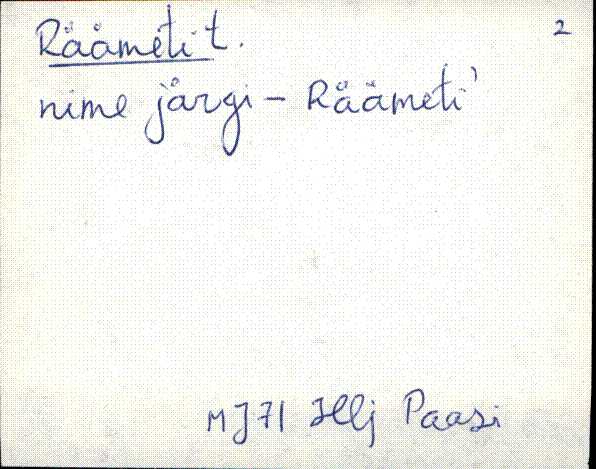 Räämeti t. 2
nime järgi – Räämeti'
MJ 71 Hlj Paasi